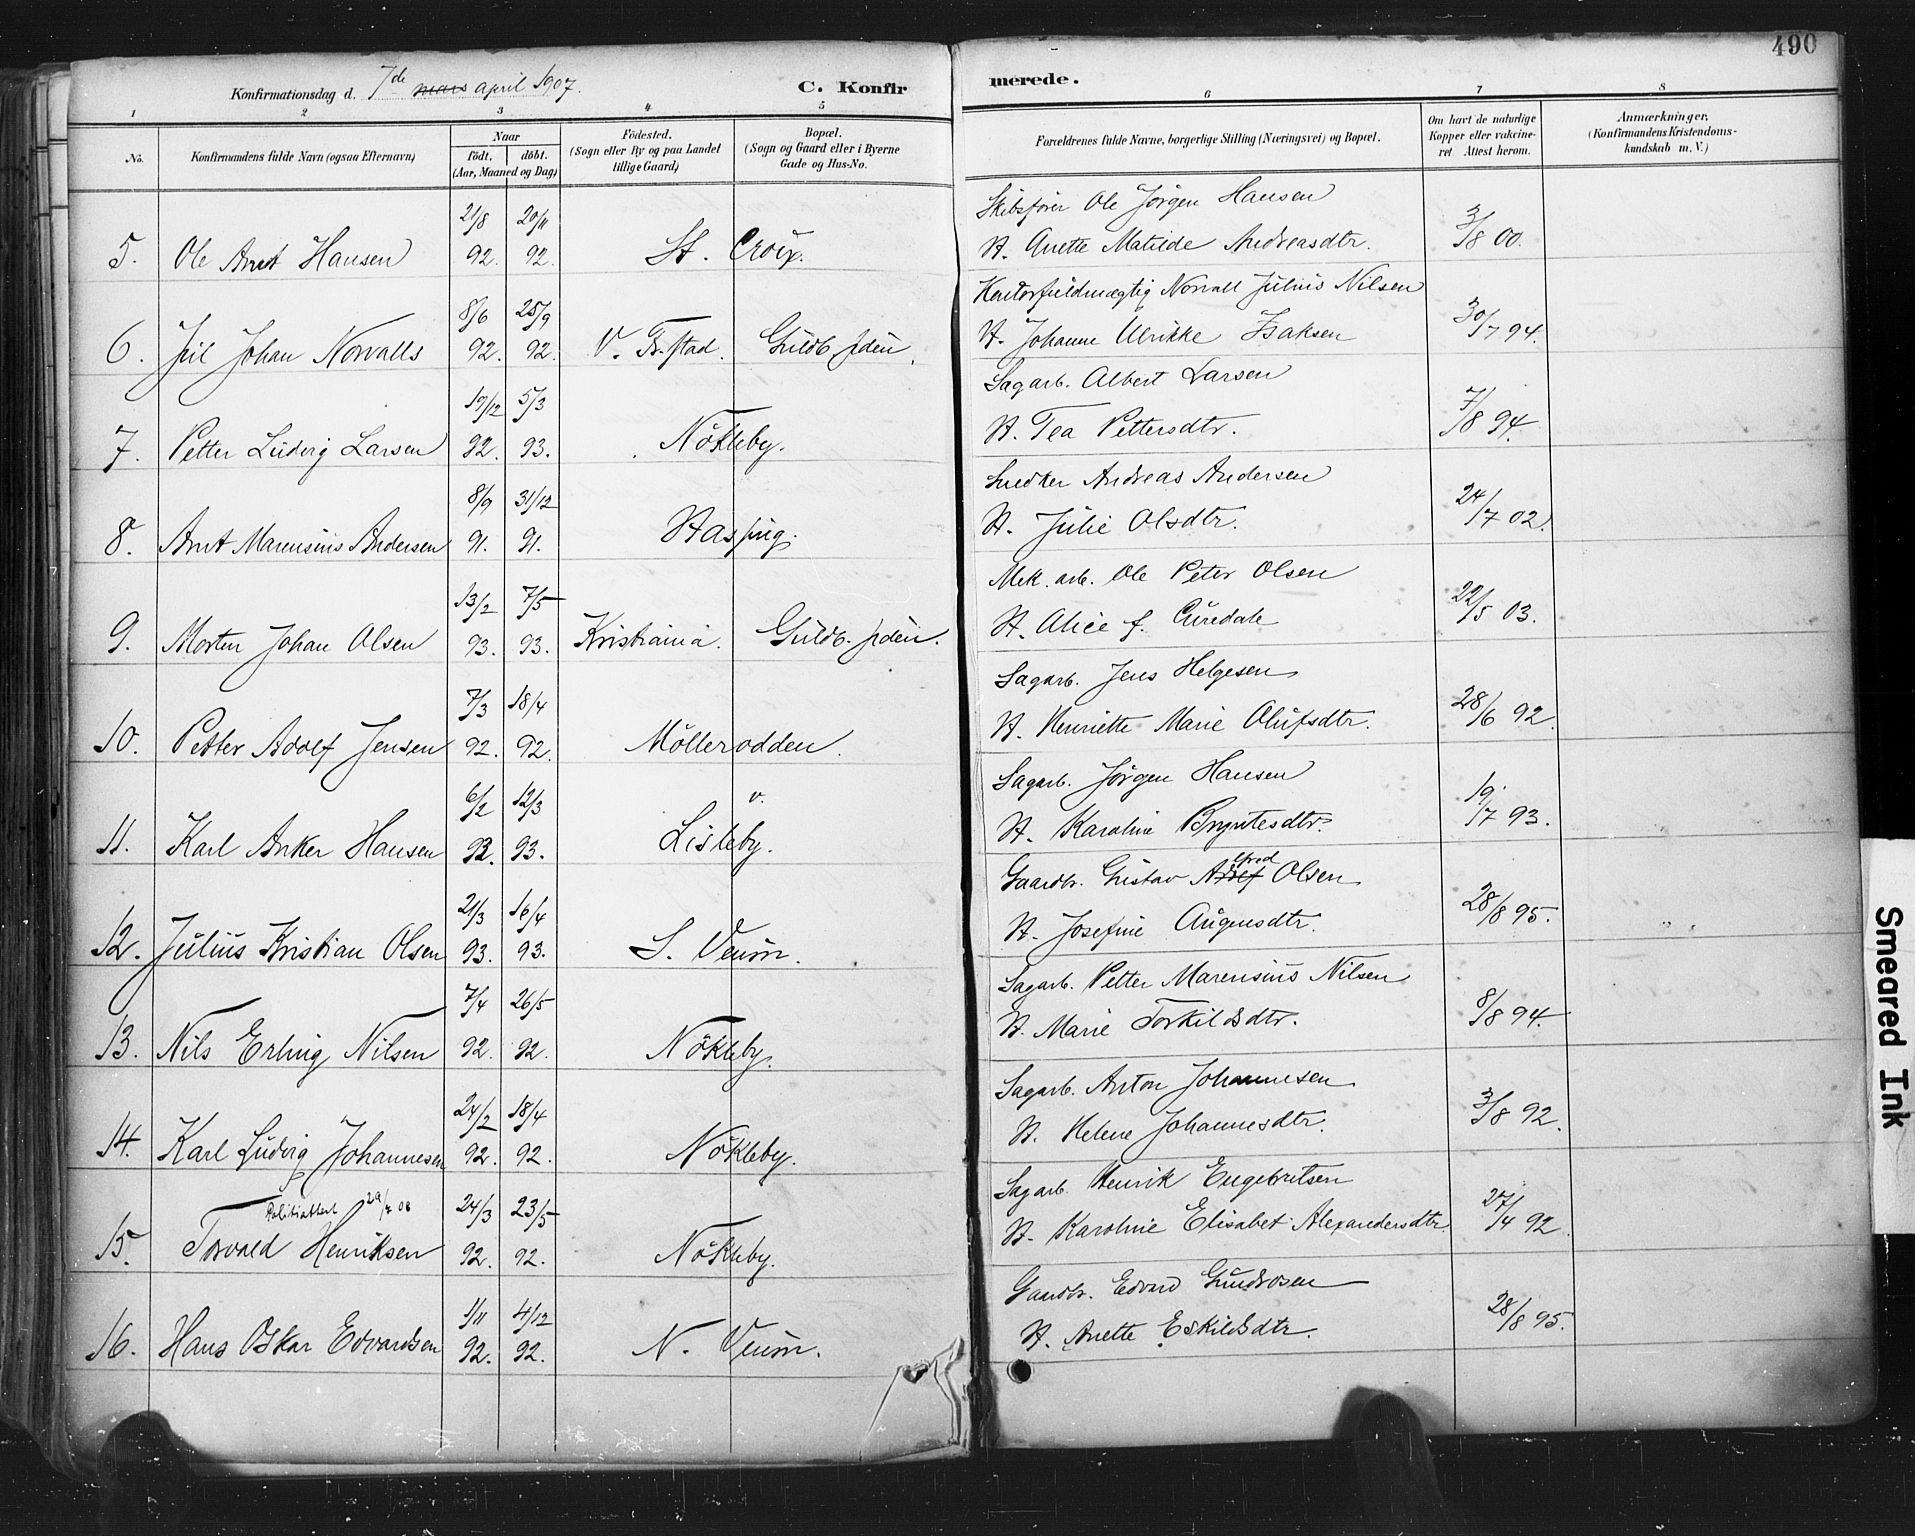 490
Konfirmationsdag d. 7de mars april 1907.
C. Konfirmerede.
1 2 3 4 5 6 7 8
No.
Konfirmandens fulde Navn (ogsaa Efternavn)
Naar
födt. döbt.
(Aar, Maaned og Dag)
Födested.
(Sogn eller By og paa Landet
tillige Gaard)
Bopæl.
(Sogn og Gaard eller i Byerne
Gade og Hus-No.
Forældrenes fulde Navne, borgerlige Stilling (Næringsvei) og Bopæl.
Om havt de naturlige
Kopper eller vakcine-
ret. Attest herom.
Anmærkninger.
(Konfirmandens Kristendoms-
kundskab m. V.)
21/8 20/11 Skibsfører Ole Jörgen Hansen
5. Ole Arnt Hansen 92. 92. St. Croix. H. Anette Matilde Andreasdtr. 3/8 00.
8/6 25/9 Kontorfuldmægtig Norvall Julius Nilsen
6. Juil Johan Norvalls 92. 92. V. Fr.stad. Guldb.sden. H. Johanne Ulrikke Isaksen 30/7 94.
19/12 5/3 Sagarb. Albert Larsen
7. Petter Ludvig Larsen 92. 93. Nökleby. H. Tea Pettersdtr. 7/8 94.
8/9 31/12 Snedker Andreas Andersen
8. Arnt Marensius Andersen 91. 91. Hasping. H. Julie Olsdtr. 24/7 02.
13/2 7/5 Mek. arb. Ole Peter Olsen
9. Morten Johan Olsen 93. 93. Kristiania. Guldb.sden. H. Alice f. Curedale 22/5 03.
7/3 18/4 Sagarb. Jens Helgesen
10. Petter Adolf Jensen 92. 92. Möllerodden. H. Henriette Marie Olufsdtr. 28/6 92.
6/2 12/3 v. Sagarb. Jörgen Hansen
11. Karl Anker Hansen 93. 93. Lisleby. H. Karoline Bryntesdtr. 19/7 93.
21/3 16/4 Gaardbr. Gustav Adolf lfred Olsen
12. Julius Kristian Olsen 93. 93. S. Veum. H. Josefine Augensdtr. 28/8 95.
7/4 26/5 Sagarb. Petter Marensius Nilsen
13. Nils Erling Nilsen 92. 92. Nökleby. H. Marie Torkildsdtr. 8/8 94.
24/2 18/4 Sagarb. Anton Johannesen
14. Karl Ludvig Johannesen 92. 92. Nökleby. H. Helene Johannesdtr. 3/8 92.
29/7 08 24/3 23/5 Sagarb. Henrik Engebretsen
15. Torvald Henriksen 92. 92. Nökleby. H. Karoline Elisabet Alexandersdtr. 27/4 92.
1/11 4/12 Gaardbr. Edvard Gundrosen
16. Hans Oskar Edvardsen 92. 92. N. Veum. H. Anette Eskildsdtr. 28/8 95.
Smeared Ink